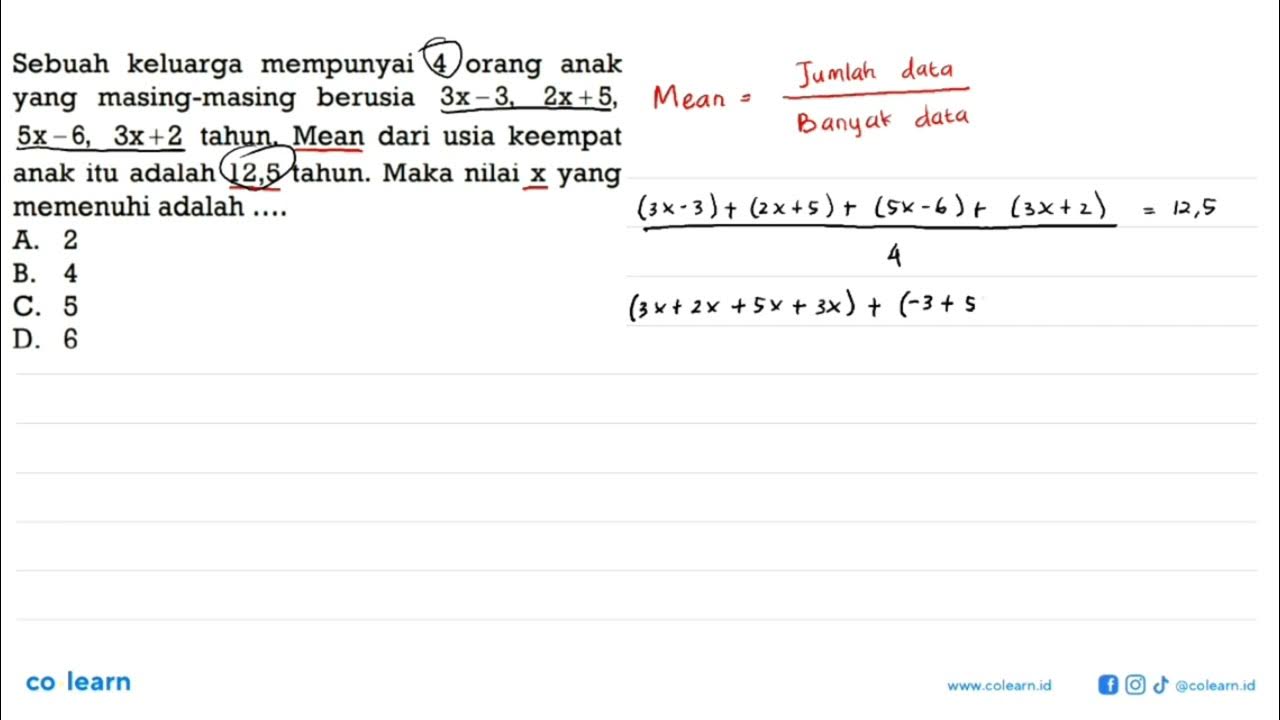 Sebuah keluarga mempunyai 4 orang anak
yang masing-masing berusia 3x-3, 2x+5,
5x-6, 3x+2 tahun. Mean dari usia keempat
anak itu adalah 12,5 tahun. Maka nilai x yang
memenuhi adalah ....
A. 2
B. 4
C. 5
D. 6
Mean = Jumlah data
Banyak data
(3x-3) + (2x+5) + (5x-6) + (3x+2) = 12,5
4
(3x + 2x + 5x + 3x) + (-3 + 5
co learn
www.colearn.id
@colearn.id